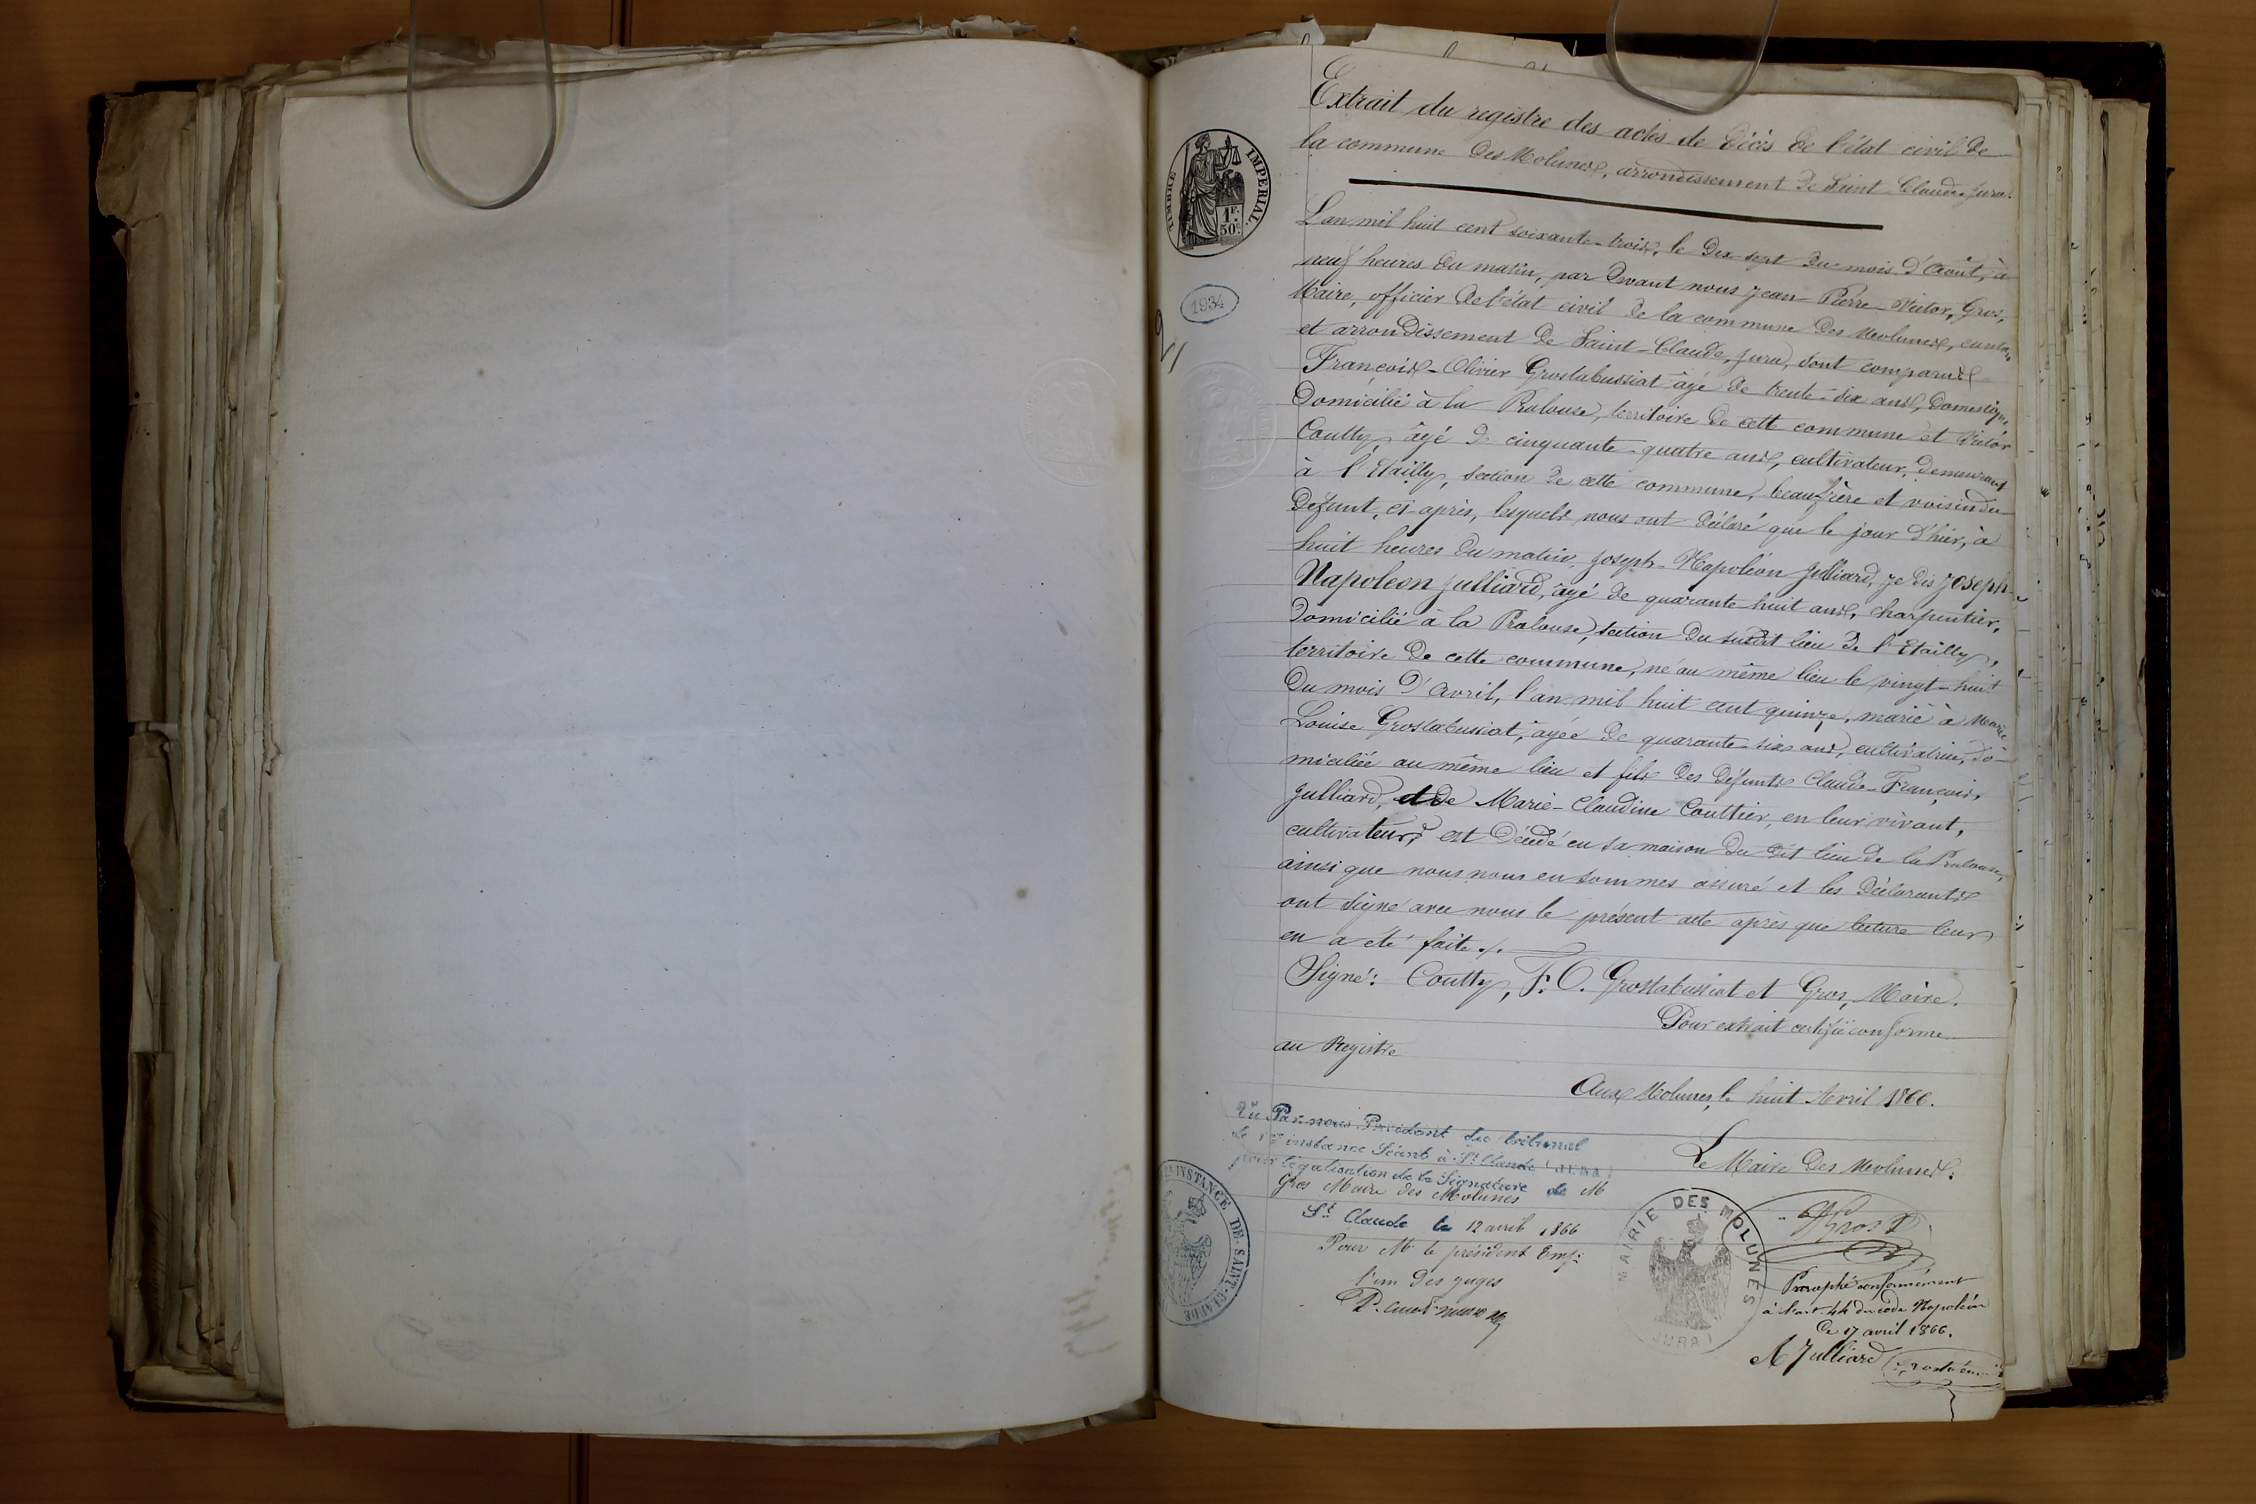 Extrait du registre des actes de décès de l'état civil de
la commune des Molunes, arrondissement de Saint-Claude, Jura.
TIMBRE IMPERIAL
1F. 50c.
L'an mil huit cent soixante-trois, le dix-sept du mois d'Août, à
neuf heures du matin, par devant nous Jean-Pierre-Victor, Gros,
Maire, officier de l'état civil de la commune des Molunes, canton
1934
et arrondissement de Saint-Claude, Jura, sont comparus
François-Olivier Grostabussiat âgé de trente-six ans, domestique
domicilié à la Pralouse, territoire de cette commune et Victor
Coutty, âgé de cinquante-quatre ans, cultivateur, demeurant
à l'Etailly, section de cette commune, beaufrère et voisin du
défunt, ci-après, lesquels nous ont déclaré que le jour d'hier, à
huit heures du matin, Joseph-Napoléon Julliard, je dis Joseph-
Napoléon Julliard, âgé de quarante-huit ans, charpentier,
domicilié à la Pralouse, section du susdit lieu de l'Etailly,
territoire de cette commune, né au même lieu le vingt-huit
du mois d'Avril, l'an mil huit cent quinze, marié à Marie
Louise Grostabussiat, âgée de quarante-six ans, cultivatrice, do-
miciliée au même lieu et fils des défunts Claude-François,
Julliard, et de Marie-Claudine Couttier, en leur vivant,
cultivateurs, est décédé en sa maison du dit lieu de la Pralouse,
ainsi que nous nous en sommes assuré et les déclarants
ont signé avec nous le présent acte après que lecture leur
en a été faite ./.
Signé: Coutty, F. O. Grostabussiat et Gros, Maire.
Pour extrait certifié conforme
au Registre
Aux Molunes, le huit Avril 1866.
Le Maire des Molunes.
Gros
Vu Par nous Président du tribunal
de 1re instance Séant à St Claude (JURA)
pour légalisation de la Signature de M
Gros Maire des Molunes
St Claude le 12 avril 1866
Pour Mr le président Emp:
l'un des juges
INSTANCE DE SAINT-CLAUDE
MAIRIE DES MOLUNES
(JURA)
Paraphé conformément
à l'art. 44 du code Napoléon
Ce 17 avril 1866.
A Julliard